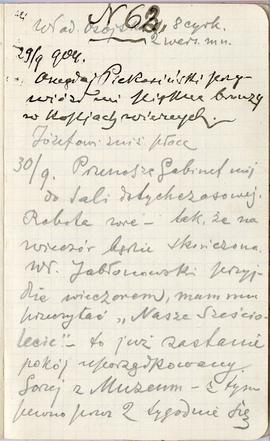 N 63.
Wład. 8 cyrk.
2 wers. mn.
29/9 904.
Onegdaj Piekosiński przy-
wiózł mi piękne brązy
w kopiach wiernych.
Józefowi zniż płacę
30/9. Przenoszę Gabinet mój
do Sali dotychczasowej.
Robota wre – tak, że na
wieczór będzie skończona.
Wł. Jabłonowski przyj-
dzie wieczorem, mam mu
przeczytać „Nasze Sześcio-
lecie" – to już zastanie
pokój uporządkowany
Gorzej z Muzeum – z tym
pewno przez 2 tygodnie się